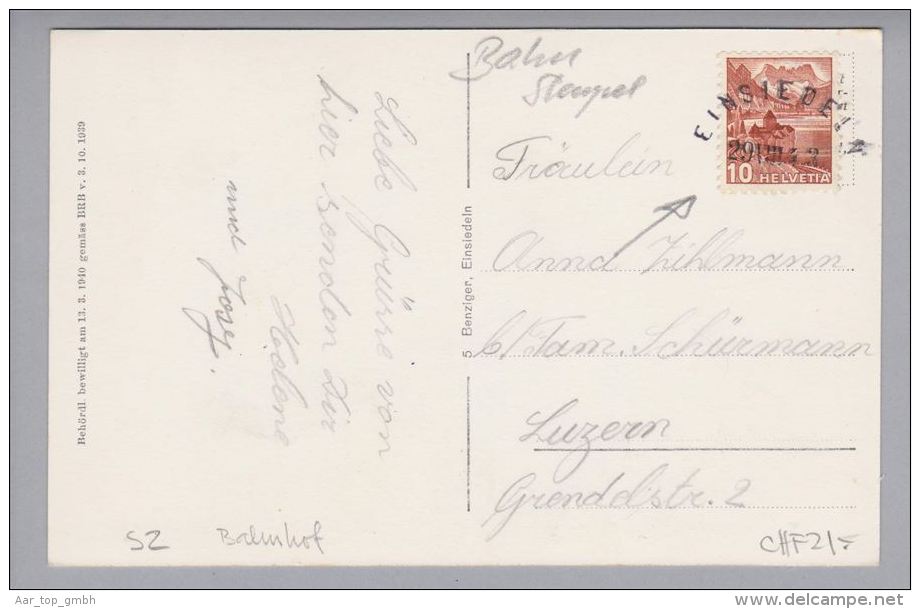 Behördl. bewilligt am 13. 3. 1940 gemäss BRB v. 3. 10. 1939
Liebe Grüsse von
hier senden Dir
Helene
und Josef.
5 Benziger, Einsiedeln
Bahn
Stempel
EINSIEDELN
29.VIII.4
10 HELVETIA
Fräulein
Anna Zihlmann
b/Fam. Schürmann
Luzern
Grendelstr. 2
SZ Bahnhof
CHF 21/-
Aar_top_gmbh
www.delcampe.net